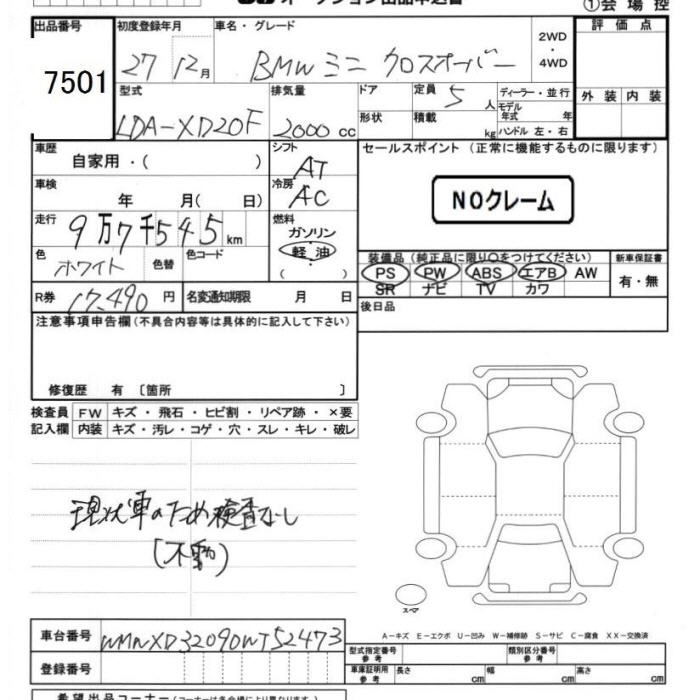 オークション出品申込書
①会場控
出品番号 7501
初度登録年月 27 12月
車名・グレード BMW ミニ クロスオーバー
2WD・4WD
評価点
外装 内装
型式 LDA-XD20F
排気量 2000cc
ドア
形状
定員 5人
積載 kg
ディーラー・並行
モデル年式 年
ハンドル 左・右
車歴 自家用・( )
シフト AT
セールスポイント (正常に機能するものに限ります)
NOクレーム
車検 年 月( 日)
冷房 AC
走行 9万7千545km
燃料 ガソリン
軽油
( )
色 ホワイト
色替
色コード
装備品 (純正品に限り○をつけてください)
PS PW ABS エアB AW
SR ナビ TV カワ
新車保証書
有・無
R券 17,490円
名変通知期限 月 日
後日品
注意事項申告欄 (不具合内容等は具体的に記入して下さい)
修復歴 有 〔箇所 〕
検査員 FW キズ・飛石・ヒビ割・リペア跡・×要
記入欄 内装 キズ・汚レ・コゲ・穴・スレ・キレ・破レ
現状車のため検査なし
(不動)
スペア
A-キズ E-エクボ U-凹み W-補修跡 S-サビ C-腐食 XX-交換済
車台番号 WMWXD32090WT52473
登録番号
型式指定番号 参考
類別区分番号 参考
車庫証明用 参考 長さ cm 幅 cm 高さ cm
希望出品コーナー